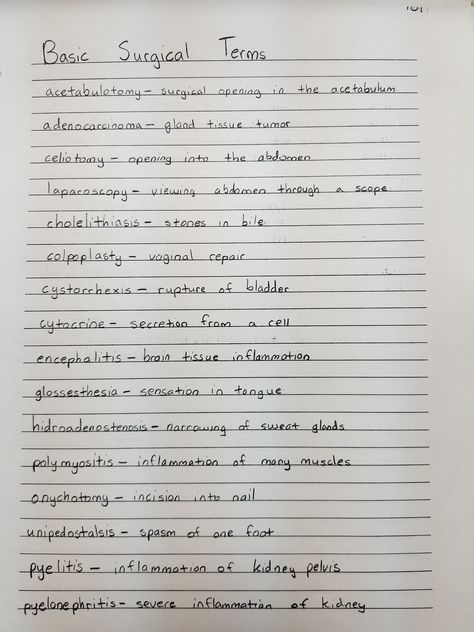 Basic Surgical Terms
acetabulotomy – surgical opening in the acetabulum
adenocarcinoma – gland tissue tumor
celiotomy – opening into the abdomen
laparoscopy – viewing abdomen through a scope
cholelithiasis – stones in bile
colpoplasty – vaginal repair
cystorrhexis – rupture of bladder
cytocrine – secretion from a cell
encephalitis – brain tissue inflammation
glossesthesia – sensation in tongue
hidroadenostenosis – narrowing of sweat glands
polymyositis – inflammation of many muscles
onychotomy – incision into nail
unipedostalsis – spasm of one foot
pyelitis – inflammation of kidney pelvis
pyelonephritis – severe inflammation of kidney